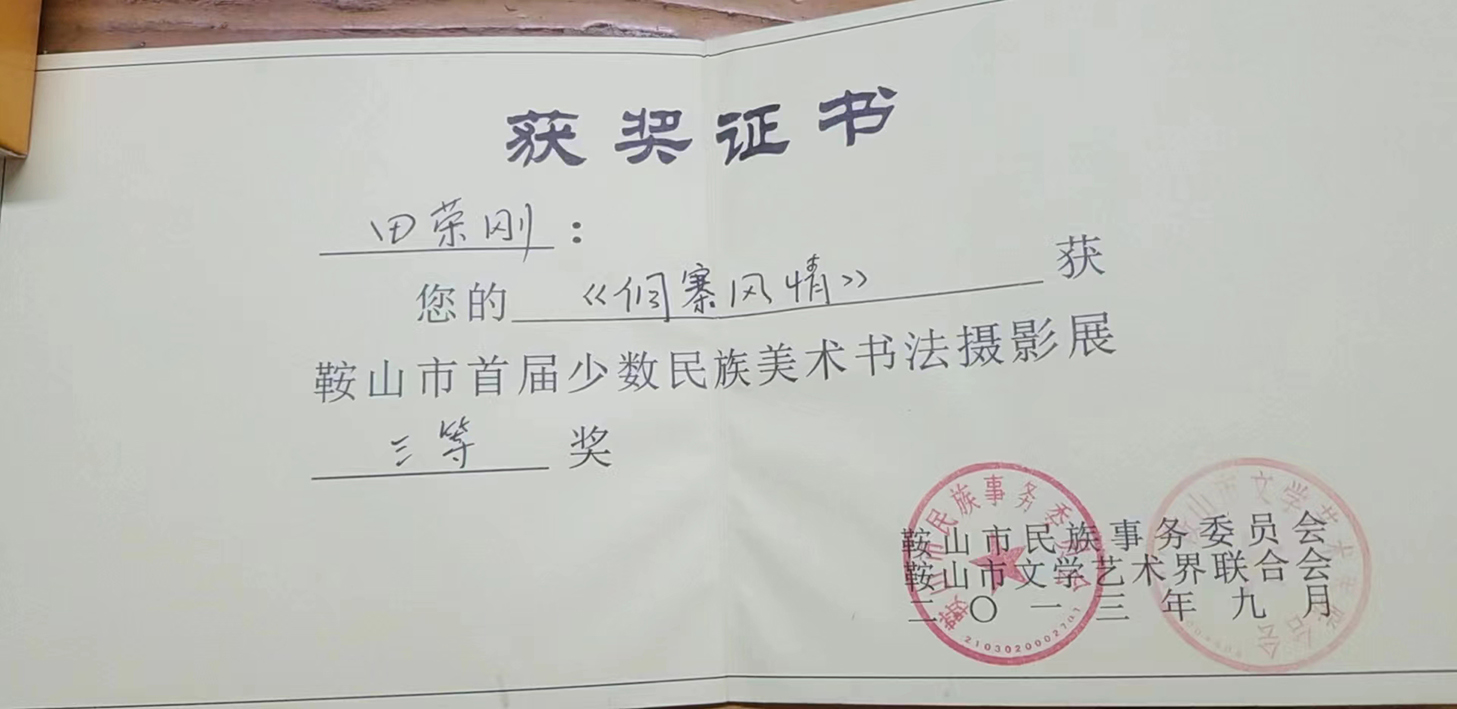 获奖证书
田荣刚：
您的《侗寨风情》获
鞍山市首届少数民族美术书法摄影展
三等奖
鞍山市民族事务委员会
鞍山市文学艺术界联合会
二〇一三年九月
鞍山市民族事务委员会
2103020002701
鞍山市文学艺术界联合会